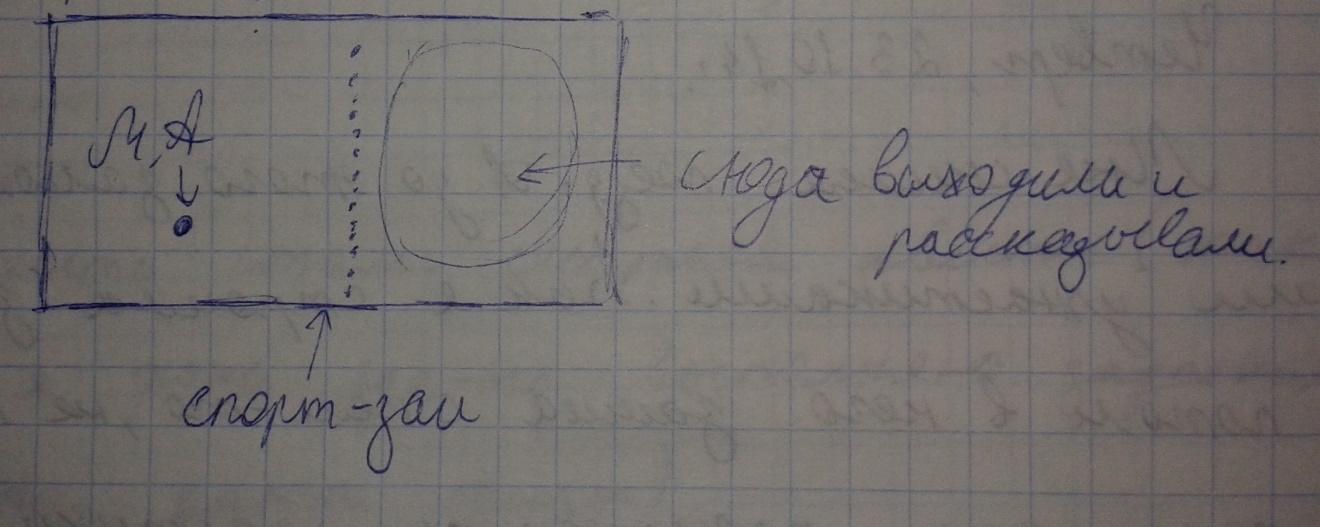 М,А
сюда выходили и
рассказывали.
спорт-зал